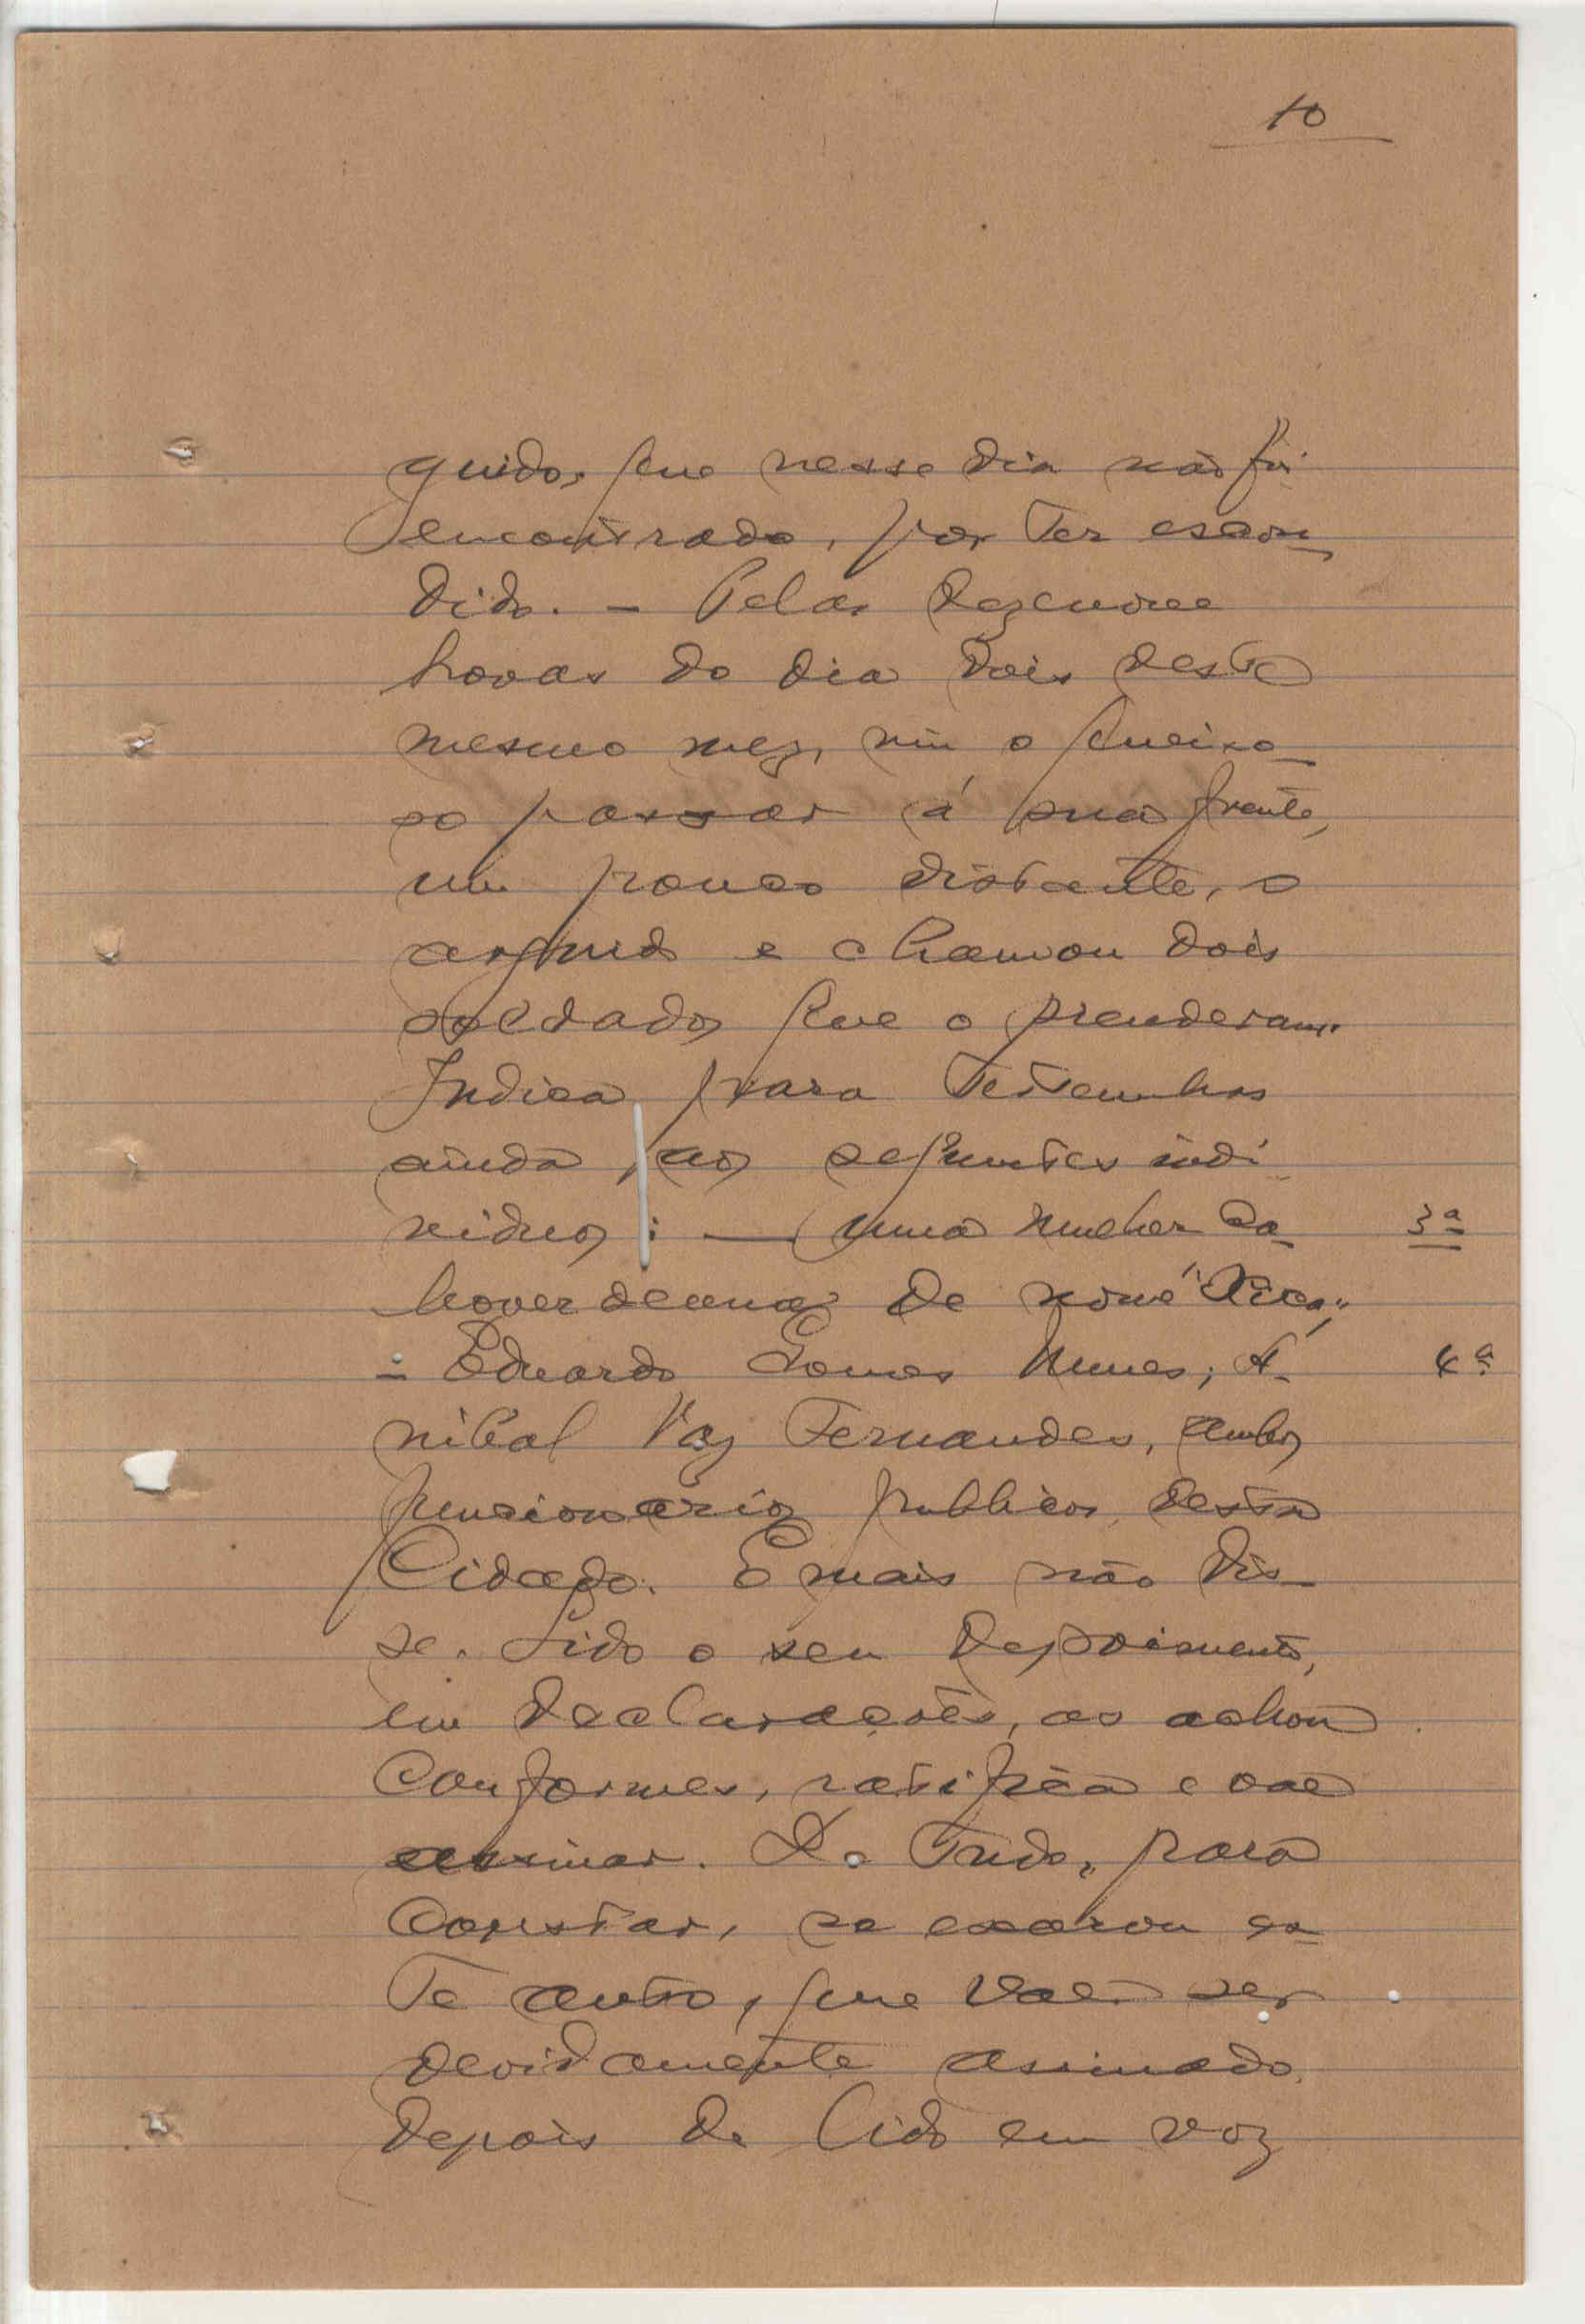 10
guido, que nesse dia não foi
encontrado, por ter escon
dido. - Pelas dezenove
horas do dia dois deste
mesmo mez, viu o queixo
so passar á sua frente,
um pouco distante, o
arguido e chamou dois
soldados que o prenderam.
Indica para testemunhas
ainda, aos seguintes indi
viduos: — uma mulher ca 3ª
boverdeana de nome "Bica"
- Eduardo Gomes Nunes; A 4ª
nibal Vaz Fernandes, ambos
funcionarios publicos desta
Cidade. E mais não dis-
se. Lido o seu depoimento,
em declarações, as achou
conformes, ratifica e vae
assinar. De tudo, para
constar, se exarou es
te auto, que vae ser
devidamente assinado
depois de lido em voz